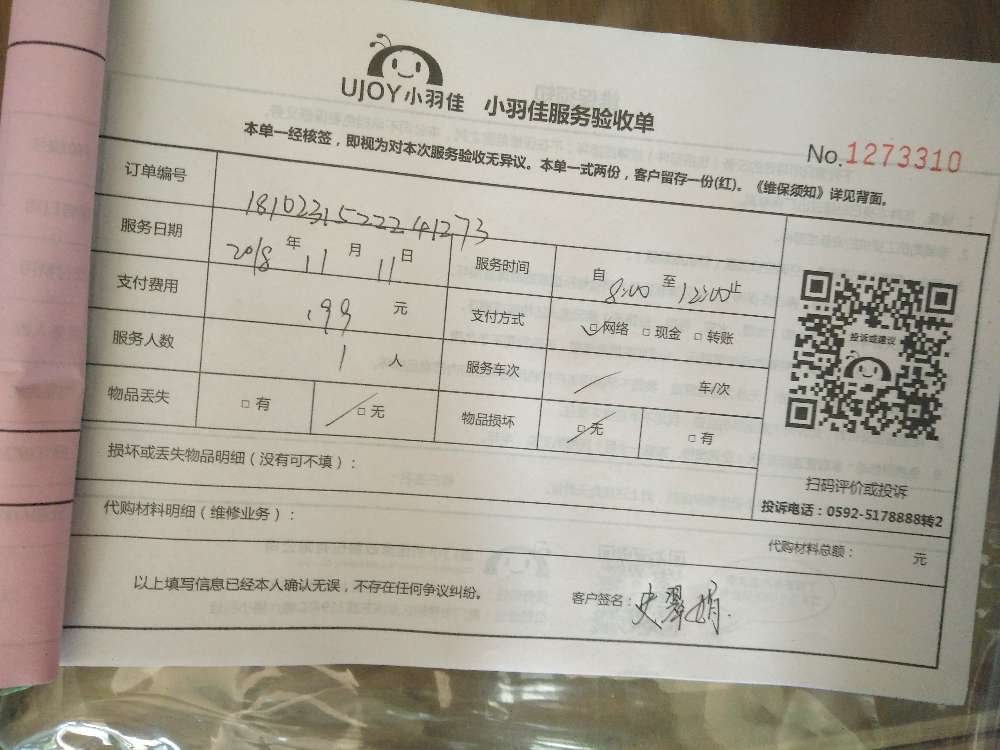 UJOY小羽佳 小羽佳服务验收单
本单一经核签，即视为对本次服务验收无异议。本单一式两份，客户留存一份(红)。《维保须知》详见背面。
No.1273310
订单编号 18102315222241273
服务日期 2018年11月11日 服务时间 自8:00至12:00止
支付费用 .99元 支付方式 ☑网络 □现金 □转账
服务人数 1人 服务车次 / 车/次
物品丢失 □有 ☑无 物品损坏 ☑无 □有
投诉或建议
扫码评价或投诉
投诉电话：0592-5178888转2
损坏或丢失物品明细（没有可不填）：
代购材料明细（维修业务）：
代购材料总额： 元
以上填写信息已经本人确认无误，不存在任何争议纠纷。 客户签名：史翠娟